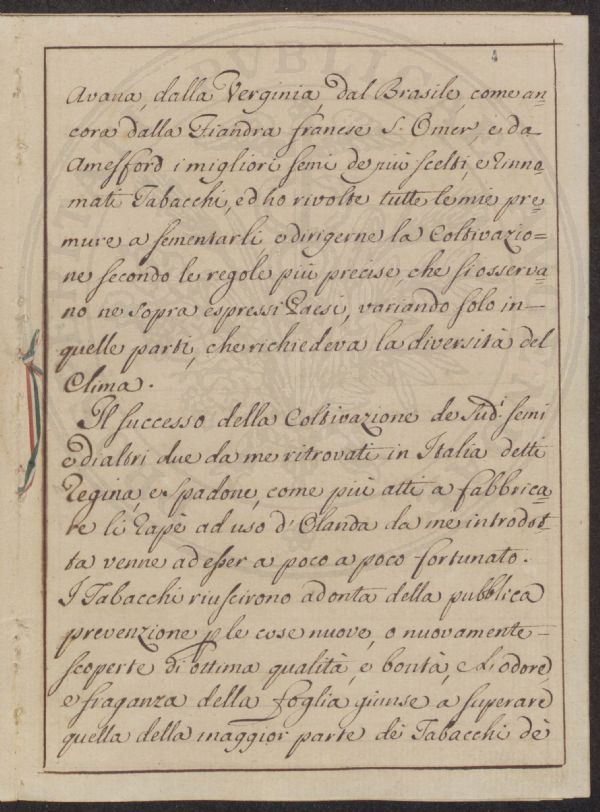 4
Avana, dalla Verginia, dal Brasile, come an=
cora dalla Fiandra franese S. Omer, e da
Amesfford i migliori semi de più scelti, e Rinno=
mati Tabacchi, ed ho rivolte tutte le mie pre=
mure a sementarli e dirigerne la Coltivazio=
ne secondo le regole più precise, che si osserva=
no ne sopra espressi Paesi, variando solo in
quelle parti, che richiedeva la diversità del
Clima.
Il successo della Coltivazione de Sud.i semi
e di altri due da me ritrovati in Italia detti
Regina, e Spadone, come più atti a fabbrica=
re li Rapè ad uso d'Olanda da me introdot=
ta venne ad esser a poco a poco fortunato.
I Tabacchi riuscirono ad onta della pubblica
prevenzione p le cose nuove, o nuovamente
scoperte di ottima qualità, e bontà, e L'odore,
e fraganza della foglia giunse a superare
quella della maggior parte dè Tabacchi dè
PUBLIC